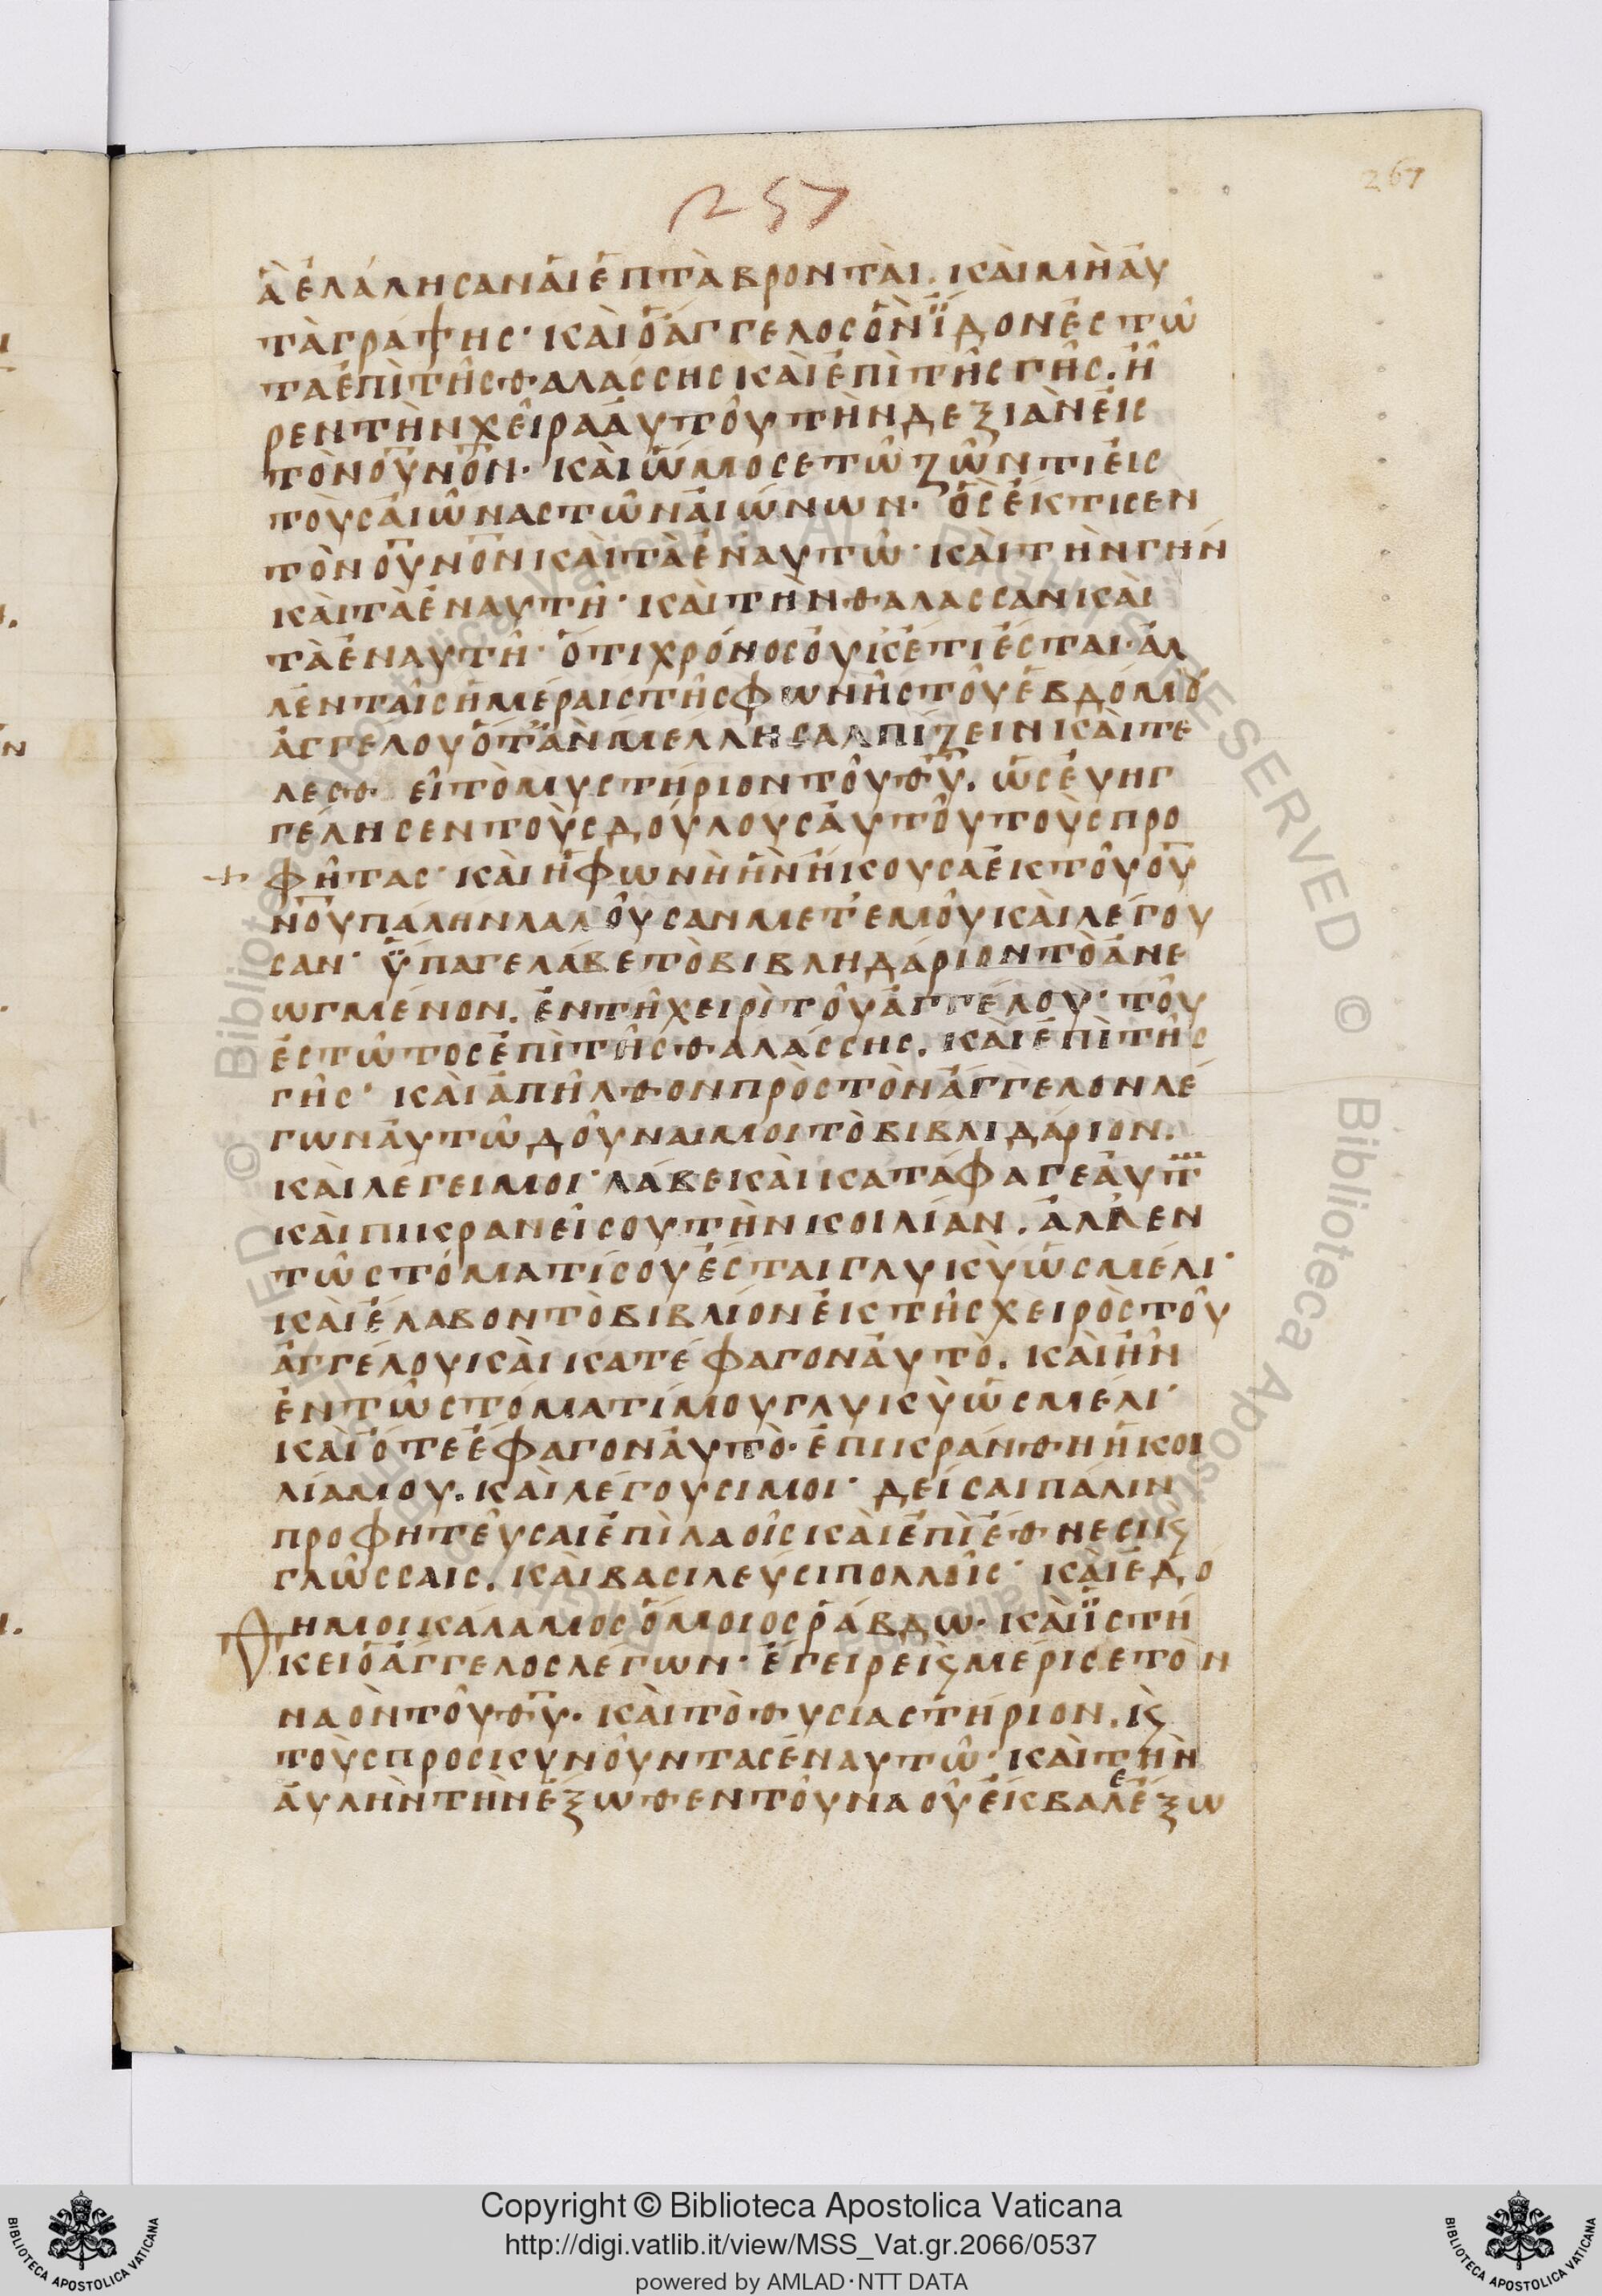 257
267
ἃ ἐλάλησαν ἁι ἑπτὰ βρονται. καὶ μὴ ἀυ
τὰ γράψης· καὶ ὁ ἄγγελος ὃν ἴδον ἑστῶ
τα ἐπὶ τῆς θαλάσσης καὶ ἐπὶ τῆς γῆς. ἦ
ρεν τὴν χεῖρα ἀυτοῦ τὴν δεξιὰν ἐις
τὸν ουνον· καὶ ὤμοσε τῶ ζῶντι ἐις
τοὺς ἀιῶνας τῶν ἀιώνων· ὃς ἔκτισεν
τὸν ουνον καὶ τὰ ἐναυτῶ· καὶ τὴν γήν
καὶ τὰ ἐναυτῆ· καὶ τὴν θαλασσαν καὶ
τὰ ἐναυτῆ· ὅτι χρόνος ὀυκέτι ἔσται· ἀλ
λἐν ταῖς ἡμέραις τῆς φωνῆς τοῦ ἑβδόμου
ἀγγέλου ὅτ' ἂν μέλλη σαλπίζειν καὶ τε
λεσθεῖ τὸ μυστήριον τοῦ θυ. ὡς ἐυηγ
γέλησεν τοὺς δούλους ἀυτοῦ τοὺς προ
+ φήτας· καὶ ἡ φωνὴ ἣν ἤκουσα ἐκ τοῦ ου
νου πάλην λαλοῦσαν μετ' ἐμοῦ καὶ λέγου
σαν· ὕπαγε λάβε τὸ βιβληδάριον τὸ ἀνε
ωγμένον. ἐν τῆ χειρὶ τοῦ ἀγγέλου· τοῦ
ἑστῶτος ἐπὶ τῆς θαλάσσης. καὶ ἐπὶ τῆς
γῆς· καὶ ἀπῆλθον πρὸς τὸν ἄγγελον λέ
γων ἀυτῶ δοῦναι μοι τὸ βιβλιδάριον.
καὶ λέγει μοι· λάβε καὶ κατάφαγε ἀυτ
καὶ πικρανεῖ σου τὴν κοιλίαν. ἀλλ' ἐν
τῶ στόματί σου ἔσται γλυκὺ ὡς μέλι·
καὶ ἔλαβον τὸ βιβλίον ἐκ τῆς χειρὸς τοῦ
ἀγγέλου καὶ κατέφαγον ἀυτὸ. καὶ ἦν
ἐν τῶ στόματί μου γλυκὺ ὡς μέλι·
καὶ ὅτε ἔφαγον ἀυτὸ· ἐπικράνθη ἡ κοι
λία μου. καὶ λέγουσι μοι· δεῖ σαι πάλιν
προφητεῦσαι ἐπὶ λαοῖς καὶ ἐπὶ ἔθνεσι κς
γλῶσσαις. καὶ βασιλεῦσι πολλοῖς· καὶ ἐδό
θη μοι κάλαμος ὅμοιος ῥάβδω· καὶ ἱστή
κει ὁ ἄγγελος λέγων· ἔγειρε κς μέρισε τὸν
ναὸν τοῦ θυ. καὶ τὸ θυσιαστήριον. κς
τοὺς προσκυνοῦντας ἐναυτῶ· καὶ τὴν
ἀυλὴν τὴν ἔξωθεν τοῦ ναοῦ ἔκβαλε ἔξω
Copyright © Biblioteca Apostolica Vaticana
http://digi.vatlib.it/view/MSS_Vat.gr.2066/0537
powered by AMLAD·NTT DATA
BIBLIOTECA APOSTOLICA VATICANA
BIBLIOTECA APOSTOLICA VATICANA